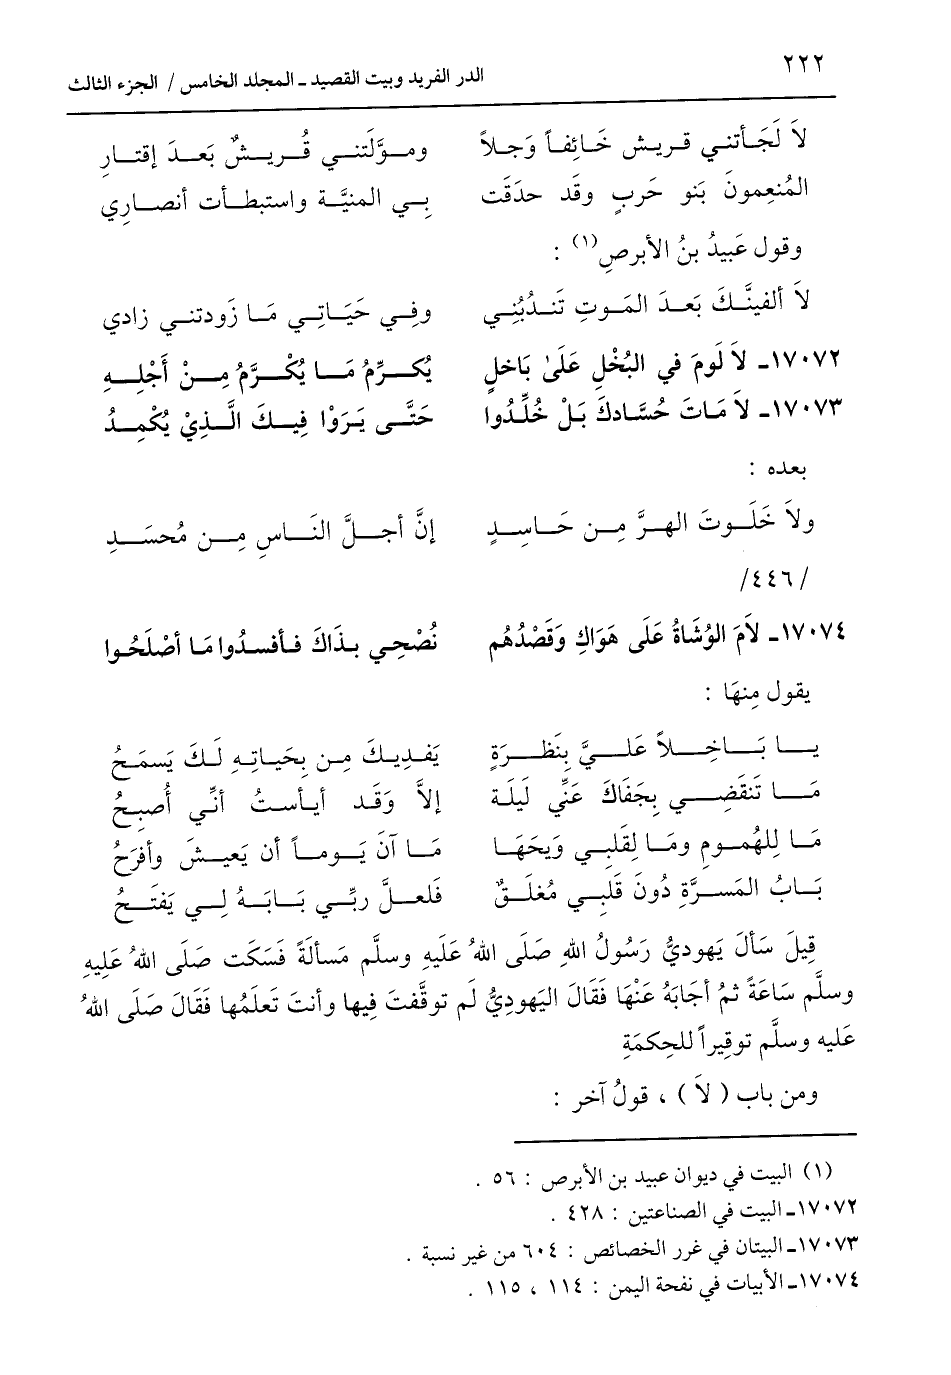 ٢٢٢
الدر الفريد وبيت القصيد ـ المجلد الخامس / الجزء الثالث
لاَ لَجَأتني قريش خَائِفاً وَجلاً ومـوَّلَتنـي قُـريـشٌ بَعـدَ إقتـارِ
المُنعِمونَ بَنو حَربٍ وقَد حدَقَت بِـي المنيَّـة واستبطـأت أنصـارِي
وقول عَبيدُ بنُ الأبرصِ(١) :
لاَ ألفينَّـكَ بَعـدَ المَـوتِ تَنـدُبُنِـي وفِـي حَيَـاتِـي مَـا زَودتنـي زادي
١٧٠٧٢ـ لاَ لَومَ في البُخْلِ عَلَىٰ بَاخلٍ يُكـرِّمُ مَـا يُكْـرَّمُ مِـنْ أَجْلِـهِ
١٧٠٧٣ـ لاَ مَاتَ حُسَّادكَ بَلْ خُلِّدُوا حَتَّـى يَـرَوْا فِيـكَ الَّـذِيْ يُكْمِـدُ
بعده :
ولاَ خَلَـوتَ الهـرَّ مِـن حَـاسِـدٍ إنَّ أجـلَّ النَـاسِ مِـن مُحسَـدِ
/٤٤٦/
١٧٠٧٤ـ لاَمَ الوُشَاةُ عَلَى هَوَاكِ وَقَصْدُهُم نُصْحِـي بـذَاكَ فـأفسـدُوا مَـا أصْلَحُـوا
يقول مِنهَا :
يـا بَـاخِـلاً عَلـيَّ بِنَظـرَةٍ يَفـدِيـكَ مِـن بِحَيـاتِـهِ لَـكَ يَسمَـحُ
مَـا تَنقَضِـي بِجَفَاكَ عَنِّي لَيلَة إلاَّ وَقَـد أيـأسـتُ أنِّـي أُصبِـحُ
مَـا لِلهُمـومِ ومَـا لِقَلبِـي وَيحَهَـا مَـا آنَ يَـومـاً أن يَعيـشَ وأفـرَحُ
بَـابُ المَسـرَّةِ دُونَ قَلبِـي مُغلَـقٌ فَلعـلَّ ربِّـي بَـابَـهُ لِـي يَفتَـحُ
قِيلَ سَألَ يَهوديُّ رَسُولُ اللهِ صَلَى اللهُ عَلَيهِ وسلَّم مَسألَةً فَسَكَت صَلَى اللهُ عَلِيهِ
وسلَّم سَاعَةً ثمُ أجَابَهُ عَنْهَا فَقَالَ اليَهودِيُّ لَم توقَّفتَ فِيها وأنتَ تَعلَمُها فَقَالَ صَلَى اللهُ
عَليه وسلَّم توقِيراً للحِكمَةِ
ومن باب ( لاَ ) ، قولُ آخر :
(١) البيت في ديوان عبيد بن الأبرص : ٥٦ .
١٧٠٧٢ـ البيت في الصناعتين : ٤٢٨ .
١٧٠٧٣ـ البيتان في غرر الخصائص : ٦٠٤ من غير نسبة .
١٧٠٧٤ـ الأبيات في نفحة اليمن : ١١٤ ، ١١٥ .